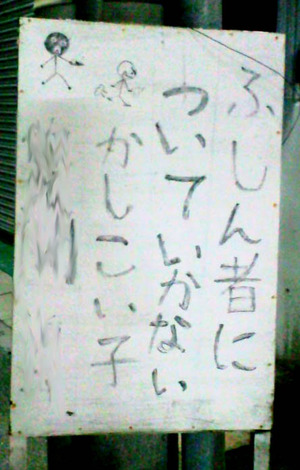 ふしん者に
ついていかない
かしこい子